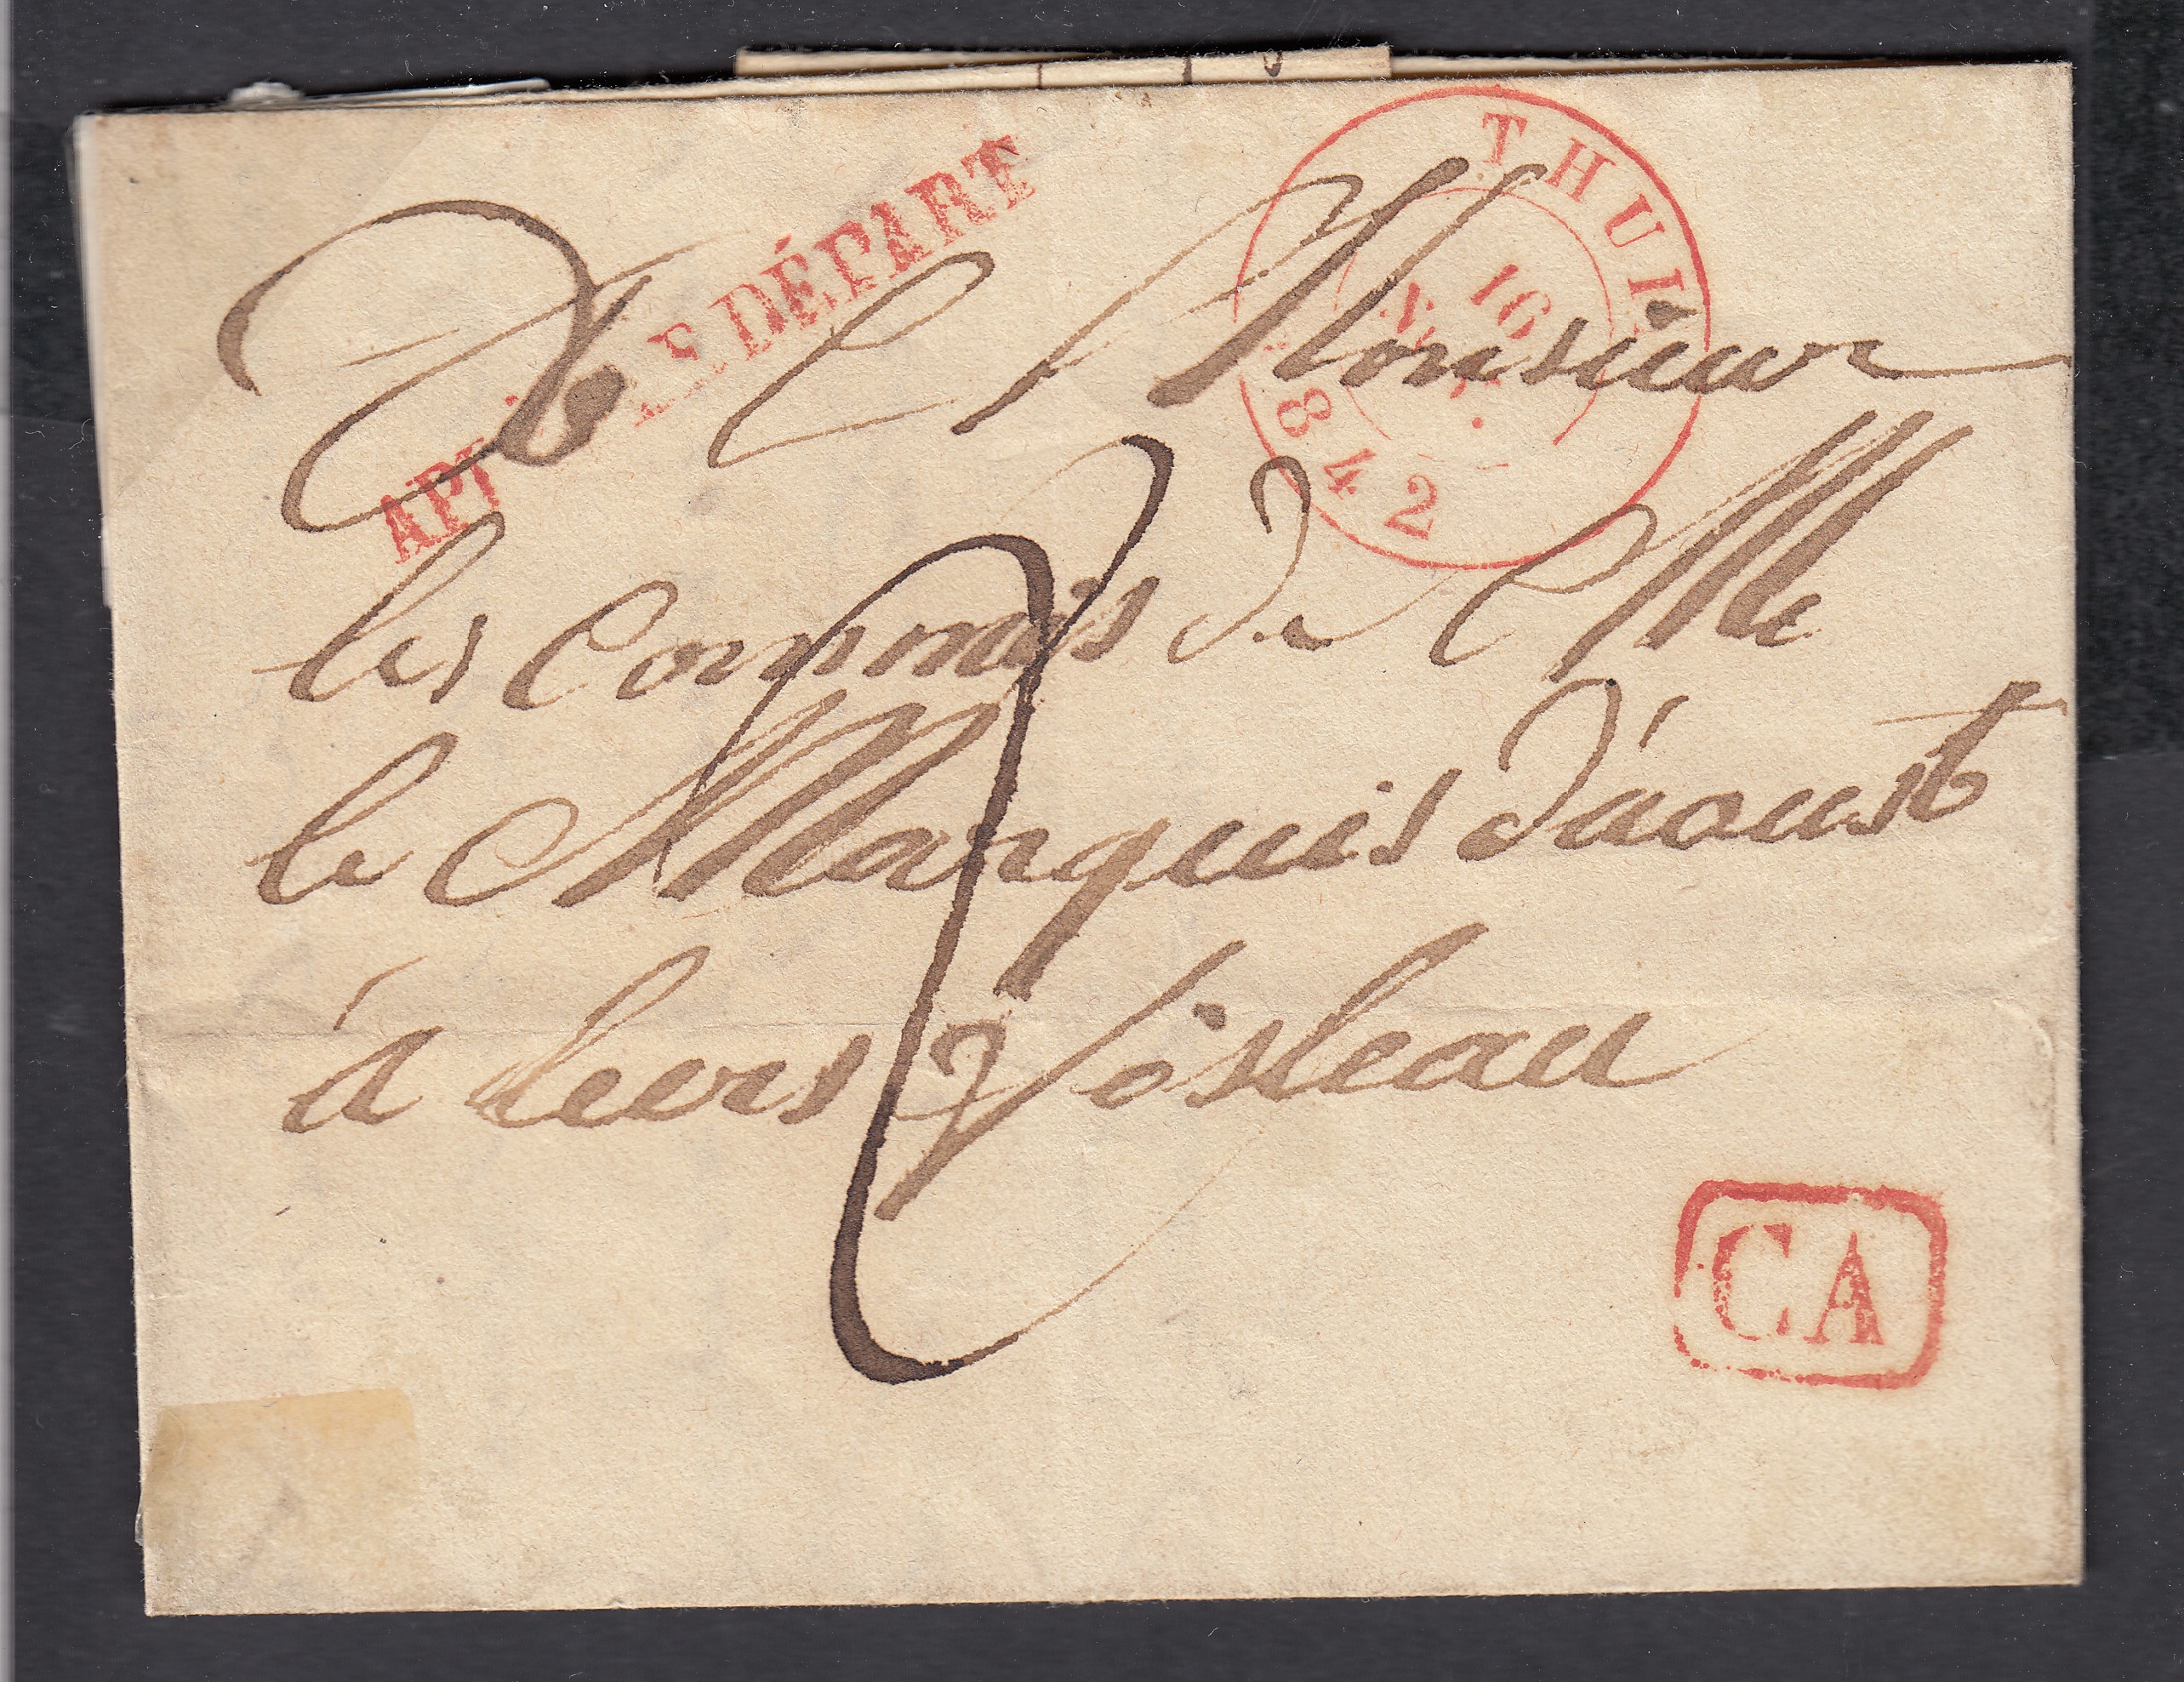 APRÈS LE DÉPART
THUIN
16
1842
A Monsieur
les Commis de Mr
le Marquis d'aoust
à leers & fosteau
2
CA